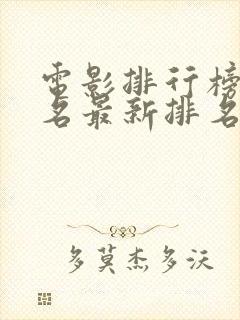 電影排行榜
名最新排名
多莫杰多沃